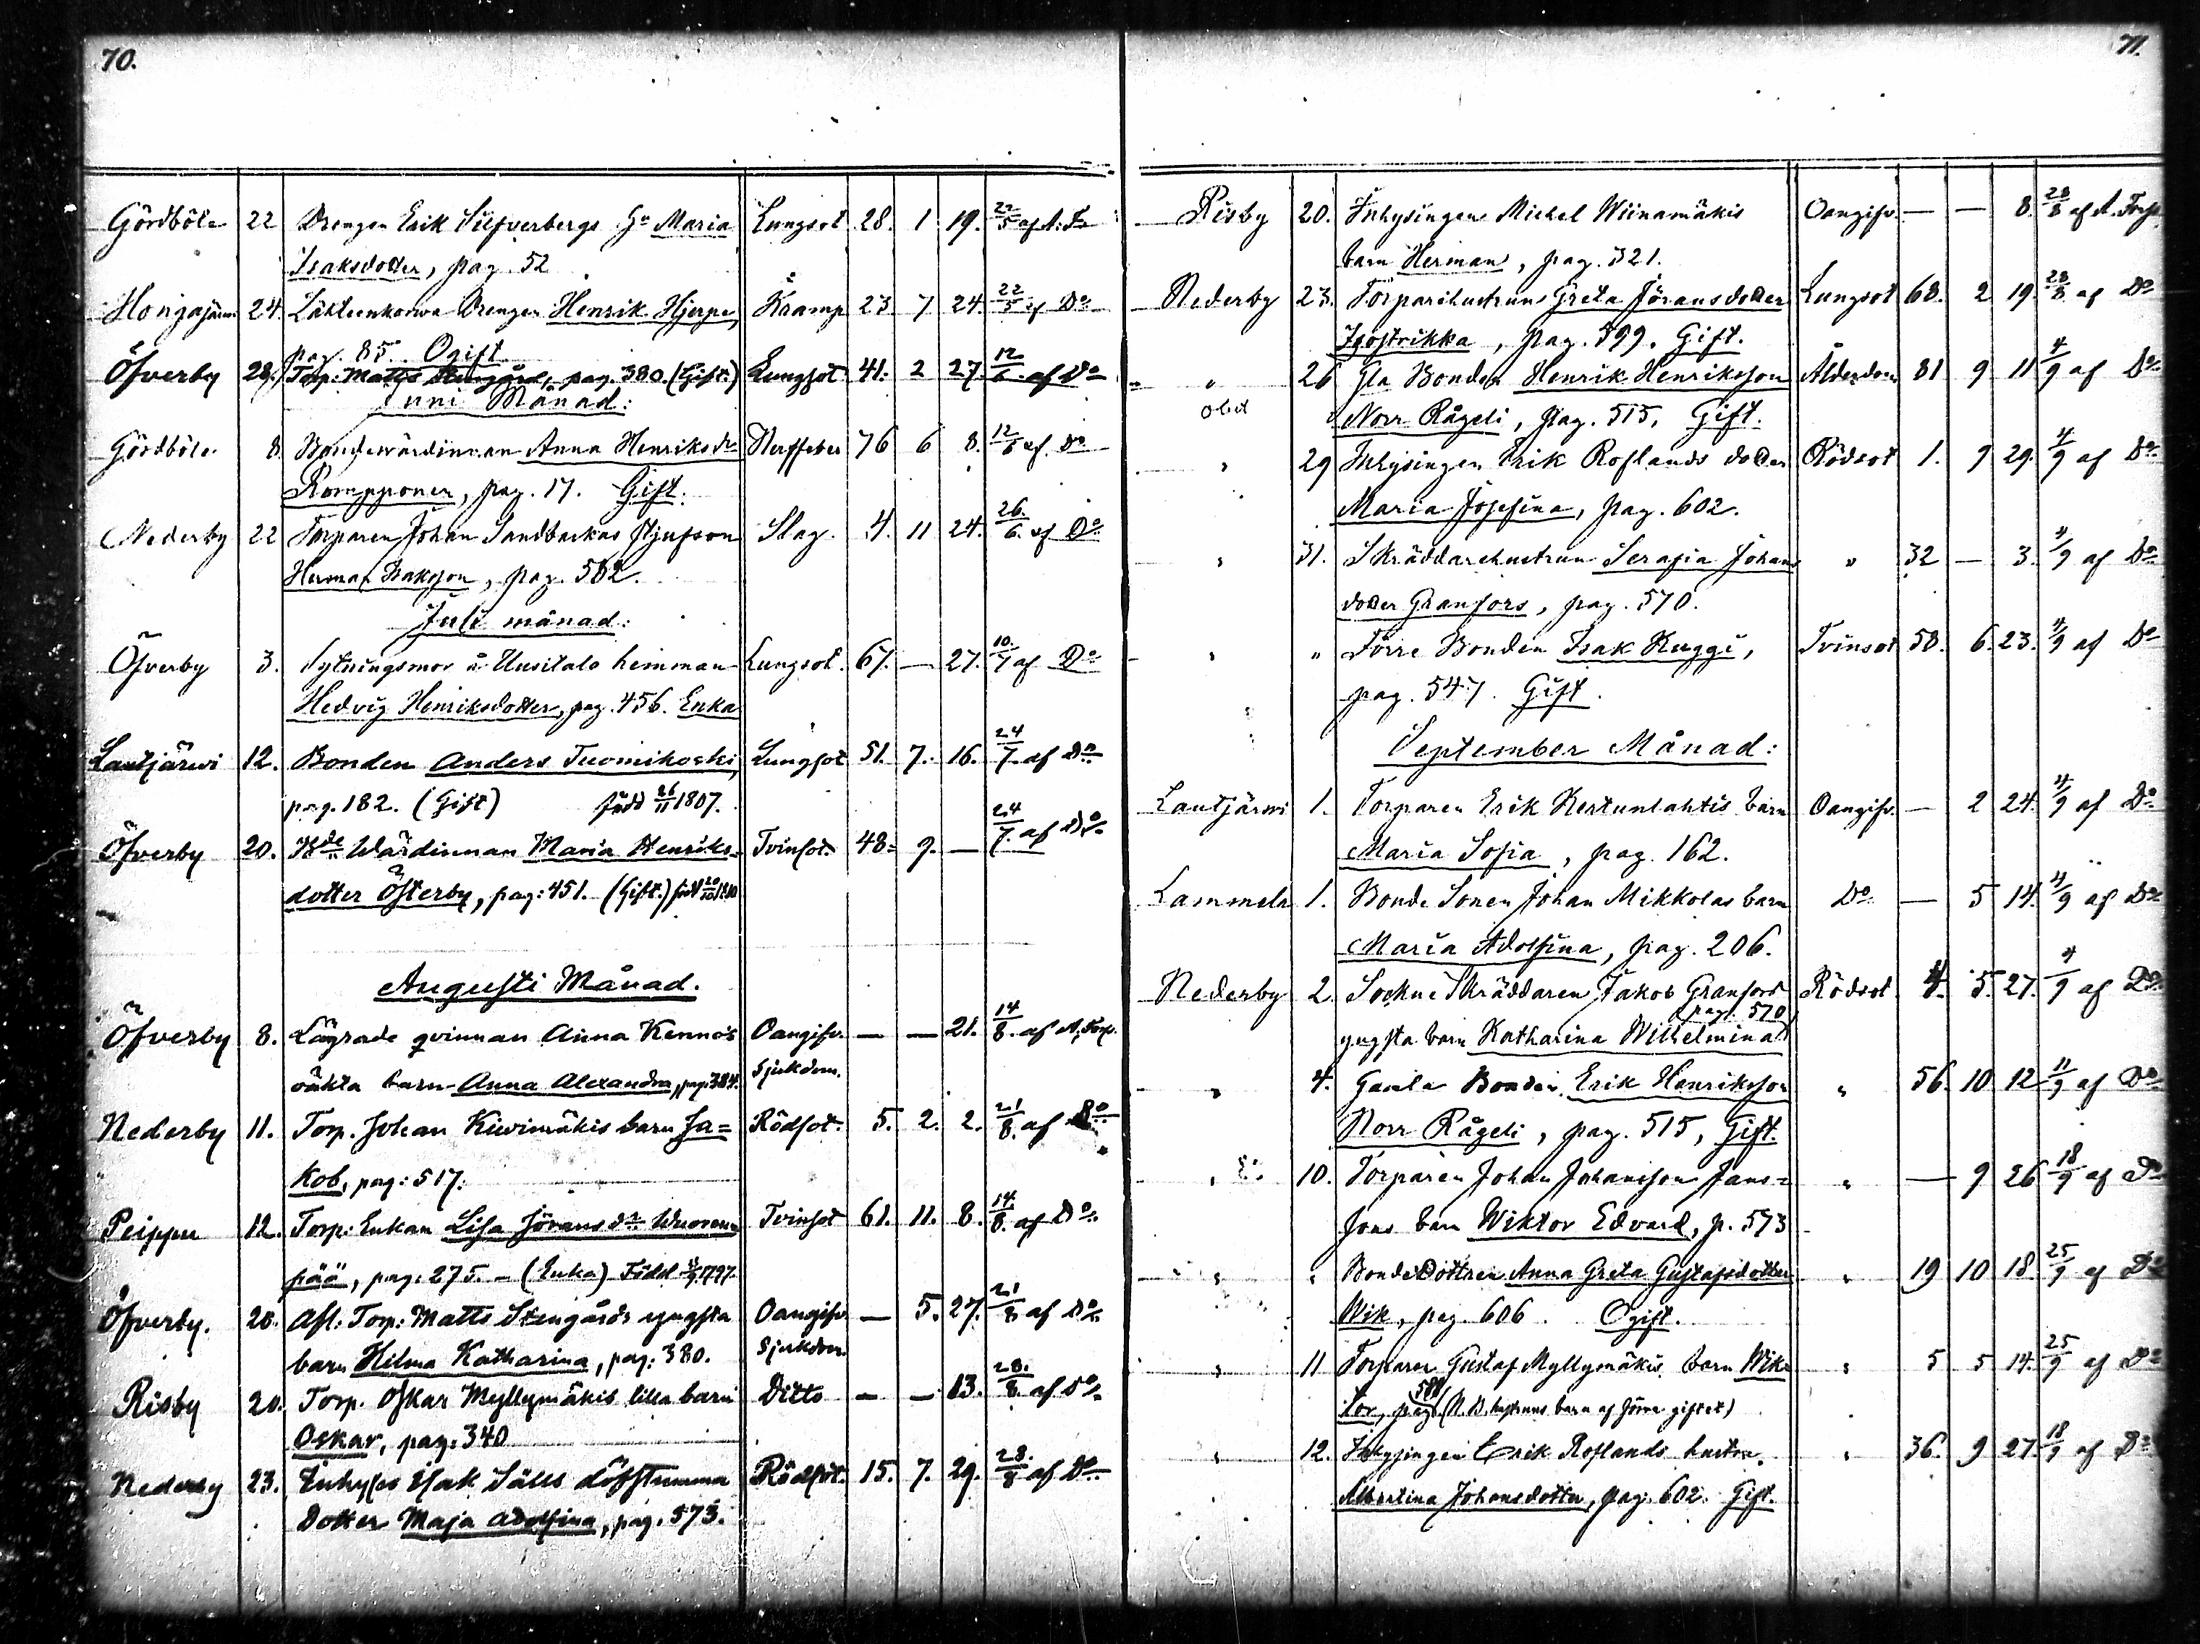 70.
Gördböle 22 Drengen Erik Silfverbergs Hu Maria Lungsot 28. 1. 19. 22/5 af A. T.
Isaksdotter, pag. 52
Hongajärwi 24. Lähteenkorwa Drengen Henrik Hjerpe, Kramp 23 7 24. 22/5 af Do
pag. 85. Ogift
Öfverby 28. Torp. Matts Stengård, pag. 380. (Gift.) Lungsot 41. 2 27. 12/6 af Do
Juni Månad:
Gördböle 8. Bondevärdinnan Anna Henriksdr Nerffeber 76 6 8. 12/6 af Do
Rompponen, pag. 17. Gift.
Nederby 22 Torparen Johan Sandbackas stjufson Slag. 4. 11 24. 26/6 af Do
Herman Isaksson, pag. 562.
Juli månad:
Öfverby 3. Sytningsmor å Uusitalo hemman Lungsot. 67. — 27. 10/7 af Do
Hedvig Henriksdotter, pag. 456. Enka
Lautjärwi 12. Bonden Anders Tuomikoski, Lungsot 51. 7. 16. 24/7 af Do
pag. 182. (Gift) född 26/11 1807.
Öfverby 20. Bde Wärdinnan Maria Henriks= Tvinsot. 48. 9. — 24/7. af Do
dotter Österby, pag: 451. (Gift.) född 20/10 1810
Augusti Månad.
Öfverby 8. Lägrade qvinnan Anna Kennos Oangifv. — — 21. 14/8. af A. Torp.
oäkta barn Anna Alexandra, pag. 384. Sjukdom.
Nederby 11. Torp. Johan Kiwimäkis barn Ja= Rödsot. 5. 2. 2. 21/8. af Do
kob, pag: 517.
Peippu 12. Torp: Enkan Lisa Jöransdr Wuoren= Tvinsot 61. 11. 8. 14/8. af Do
pää, pag: 275. – (Enka) Född 4/9 1797.
Öfverby. 20. Afl. Torp: Matts Stengårds yngsta Oangifv. — 5. 27. 21/8 af Do
barn Hilma Katharina, pag: 380. Sjukdom
Risby 20. Torp. Oskar Myllymäkis lilla barn Ditto — — 13. 28./8 af Do
Oskar, pag: 340
Nederby 23. Inhyses Isak Sälls döfstumma Rödsot. 15. 7. 29. 28/8 af Do
Dotter Maja Adolfina, pag. 573.
71.
Risby 20. Inhysingen Mickel Wiinamäkis Oangifv. — — 8. 28/8 af A. Torp.
barn Herman, pag. 321.
Nederby 23. Torparihustrun Greta Jöransdotter Lungsot 68. 2 19. 28/8 af Do
Isostrikka, pag. 599. Gift.
" 26 Gla Bonden Henrik Henriksson Ålderdom 81 9 11 4/9 af Do
Norr Rågeli, pag. 515, Gift.
" 29 Inhysingen Erik Roslands dotter Rödsot 1. 9 29. 4/9 af Do
Maria Josefina, pag. 602.
" 31. Skräddarehustrun Serafia Johans " 32 — 3. 4/9 af Do
dotter Granfors, pag. 570.
" " Förre Bonden Isak Kuggi, Tvinsot 58. 6. 23. 4/9 af Do
pag. 547. Gift.
September Månad:
Lautjärwi 1. Torparen Erik Kertunlahtis barn Oangifv. — 2 24. 4/9 af Do
Maria Sofia, pag. 162.
Lammela 1. Bonde Sonen Johan Mikkolas barn Do — 5 14. 4/9 af Do
Maria Adolfina, pag. 206.
Nederby 2. Sockne Skräddaren Jakob Granfors Rödsot 4. 5. 27. 4/9 af Do
pag. 570
yngsta barn Katharina Wilhelmina
" 4. Gamla Bonden Erik Henriksson " 56. 10 12. 11/9 af Do
Norr Rågeli, pag. 515, Gift.
" 10. Torparen Johan Johansson Jans= " — 9 26 18/9 af Do
sons barn Wiktor Edvard, p. 573
" " BondeDottren Anna Greta Gustafsdotter " 19 10 18. 25/9 af Do
Wik, pag. 606. Ogift.
" 11 Torparen Gustaf Myllymäkis barn Wik= " 5 5 14. 25/9 af Do
tor, pag. 588 (N.B. hustruns barn af förra giftet)
" 12. Inhysingen Erik Roslands hustru " 36. 9 27. 18/9 af Do
Albertina Johansdotter, pag. 602. Gift.